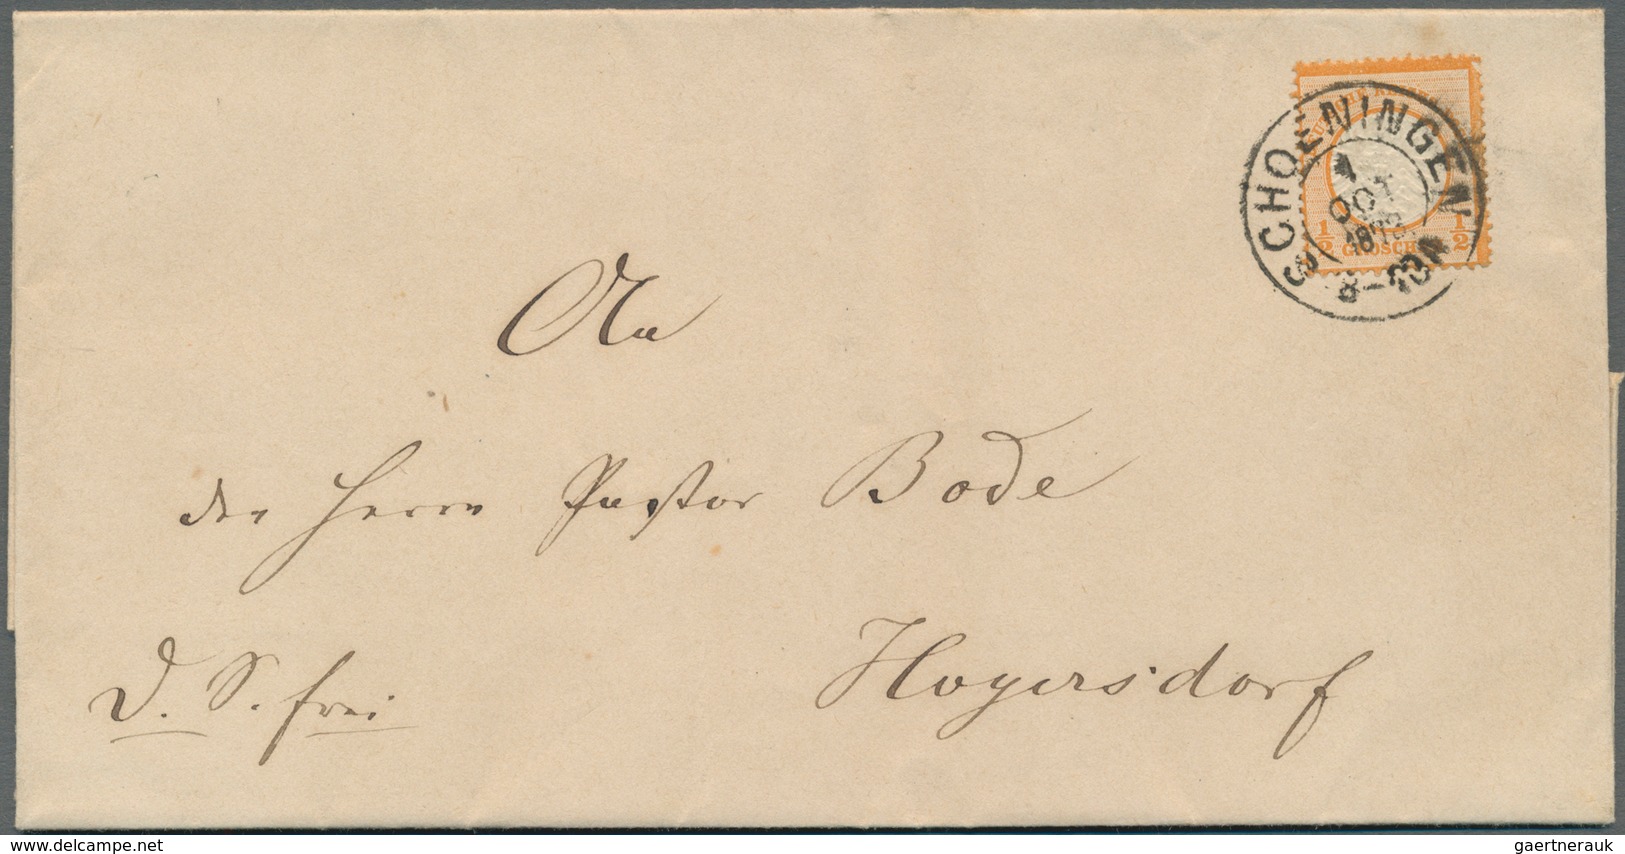 SCHOENINGEN
1
OCT
1873
8-
1/2 GROSCH 1/2
An
den Herrn Pastor Bode
Hoyersdorf
D. S. frei
www.delcampe.net
gaertnerauk